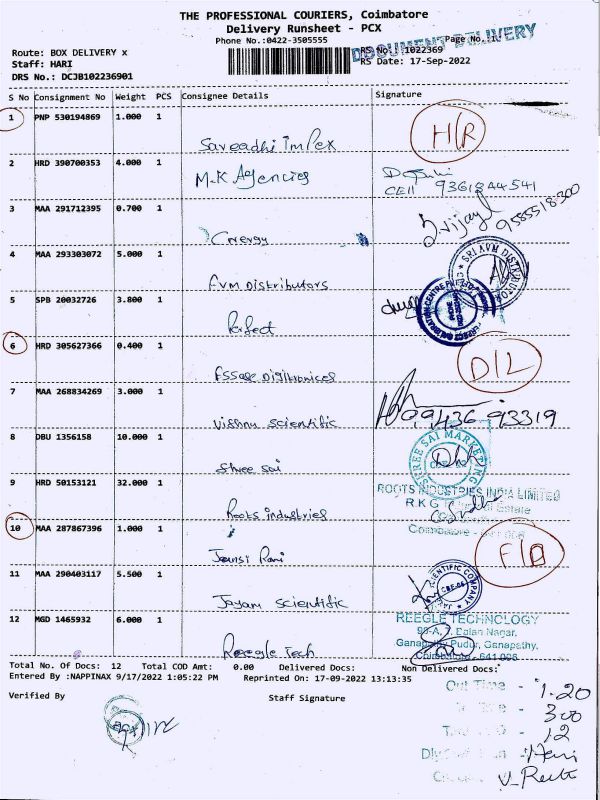 THE PROFESSIONAL COURIERS, Coimbatore
Delivery Runsheet - PCX
Phone No.:0422-3505555
Page No.:1
DOCUMENT DELIVERY
Route: BOX DELIVERY x
RS No. 1022369
Staff: HARI
RS Date: 17-Sep-2022
DRS No.: DCJB102236901
S No Consignment No Weight PCS Consignee Details Signature
1 PNP 530194869 1.000 1 Saveadhi Impex H/R
2 HRD 390700353 4.000 1 M.K Agencies CEll 9361844541
3 MAA 291712395 0.700 1 Cnergy Vijay 9585518300
4 MAA 293303072 5.000 1 AVM Distributors SRI AVM DISTRIBUTORS
5 SPB 20032726 3.800 1 Perfect
6 HRD 305627366 0.400 1 Essae Digitronices D/L
7 MAA 268834269 3.000 1 Vishnu Scientific 09436 93319
8 DBU 1356158 10.000 1 Shree Sai SHREE SAI MARKETING
9 HRD 50153121 32.000 1 Roots industries ROOTS INDUSTRIES INDIA LIMITED
R K G Estate
Coimbatore
10 MAA 287867396 1.000 1 Jansi Rani
11 MAA 290403117 5.500 1 Jayam Scientific
12 MGD 1465932 6.000 1 Reegle Tech REEGLE TECHNOLOGY
Ganapathy Pudur, Ganapathy,
Coimbatore - 641 006
Total No. Of Docs: 12 Total COD Amt: 0.00 Delivered Docs: Non Delivered Docs:
Entered By :NAPPINAX 9/17/2022 1:05:22 PM Reprinted On: 17-09-2022 13:13:35
Verified By Staff Signature
Out Time - 1.20
300
12
Hari